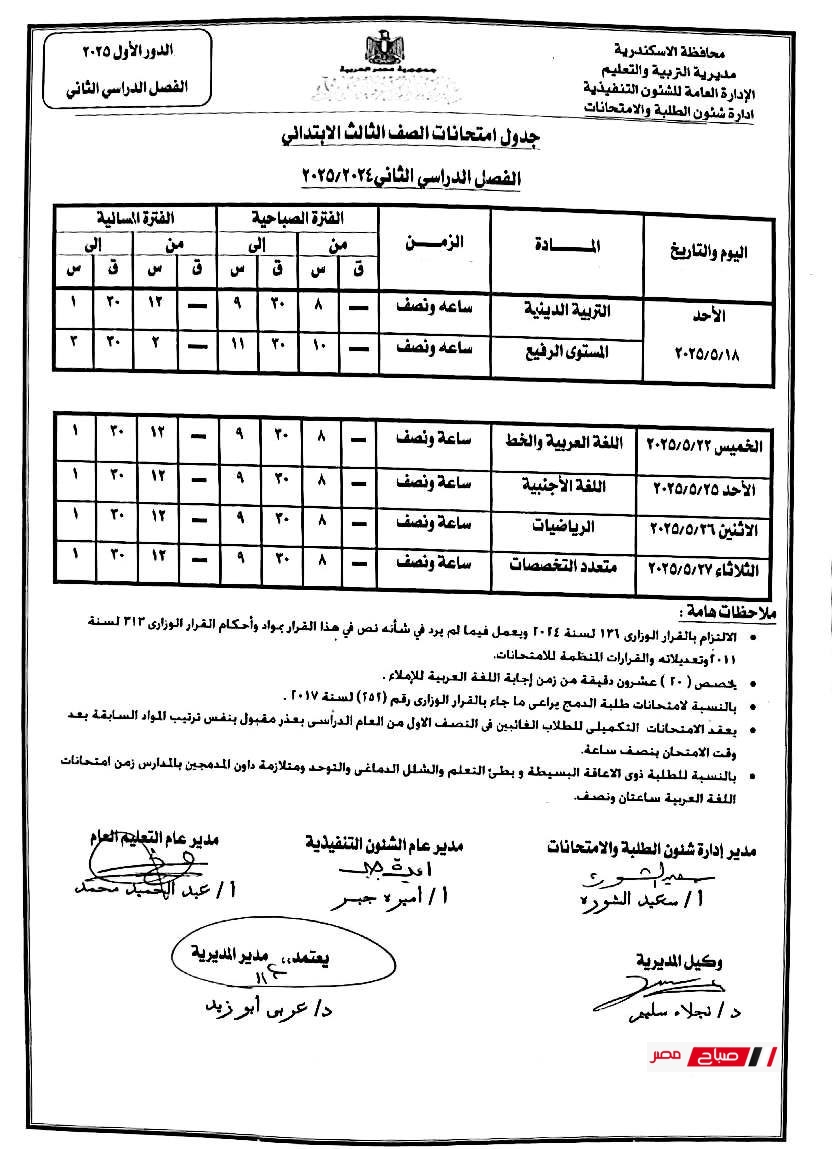 محافظة الاسكندرية
مديرية التربية والتعليم
الإدارة العامة للشئون التنفيذية
ادارة شئون الطلبة والامتحانات
جمهورية مصر العربية
الدور الأول ٢٠٢٥
الفصل الدراسي الثاني
جدول امتحانات الصف الثالث الابتدائي
الفصل الدراسي الثاني ٢٠٢٥/٢٠٢٤
اليوم والتاريخ المــــادة الزمـــن الفترة الصباحية الفترة المسائية
من إلى من إلى
ق س ق س ق س ق س
الأحد ٢٠٢٥/٥/١٨ التربية الدينية ساعه ونصف — ٨ ٣٠ ٩ — ١٢ ٣٠ ١
المستوى الرفيع ساعه ونصف — ١٠ ٣٠ ١١ — ٢ ٣٠ ٣
الخميس ٢٠٢٥/٥/٢٢ اللغة العربية والخط ساعة ونصف — ٨ ٣٠ ٩ — ١٢ ٣٠ ١
الأحد ٢٠٢٥/٥/٢٥ اللغة الأجنبية ساعة ونصف — ٨ ٣٠ ٩ — ١٢ ٣٠ ١
الاثنين ٢٠٢٥/٥/٢٦ الرياضيات ساعة ونصف — ٨ ٣٠ ٩ — ١٢ ٣٠ ١
الثلاثاء ٢٠٢٥/٥/٢٧ متعدد التخصصات ساعة ونصف — ٨ ٣٠ ٩ — ١٢ ٣٠ ١
ملاحظات هامة :
• الالتزام بالقرار الوزارى ١٣٦ لسنة ٢٠٢٤ ويعمل فيما لم يرد في شأنه نص في هذا القرار بمواد وأحكام القرار الوزارى ٣١٣ لسنة
٢٠١١ وتعديلاته والقرارات المنظمة للامتحانات.
• يخصص ( ٢٠ ) عشرون دقيقة من زمن إجابة اللغة العربية للإملاء .
• بالنسبة لامتحانات طلبة الدمج يراعى ما جاء بالقرار الوزارى رقم (٢٥٢) لسنة ٢٠١٧ .
• يعقد الامتحانات التكميلى للطلاب الغائبين فى النصف الاول من العام الدراسى بعذر مقبول بنفس ترتيب المواد السابقة بعد
وقت الامتحان بنصف ساعة.
• بالنسبة للطلبة ذوى الاعاقة البسيطة و بطئ التعلم والشلل الدماغى والتوحد ومتلازمة داون المدمجين بالمدارس زمن امتحانات
اللغة العربية ساعتان ونصف.
مدير إدارة شئون الطلبة والامتحانات
أ/ سعيد الشوره
مدير عام الشئون التنفيذية
أ/ أميره جبر
مدير عام التعليم العام
أ/ عبد الحميد محمد
وكيل المديرية
د/ نجلاء سليم
يعتمد،، مدير المديرية
د/ عربى أبو زيد
صباح مصر